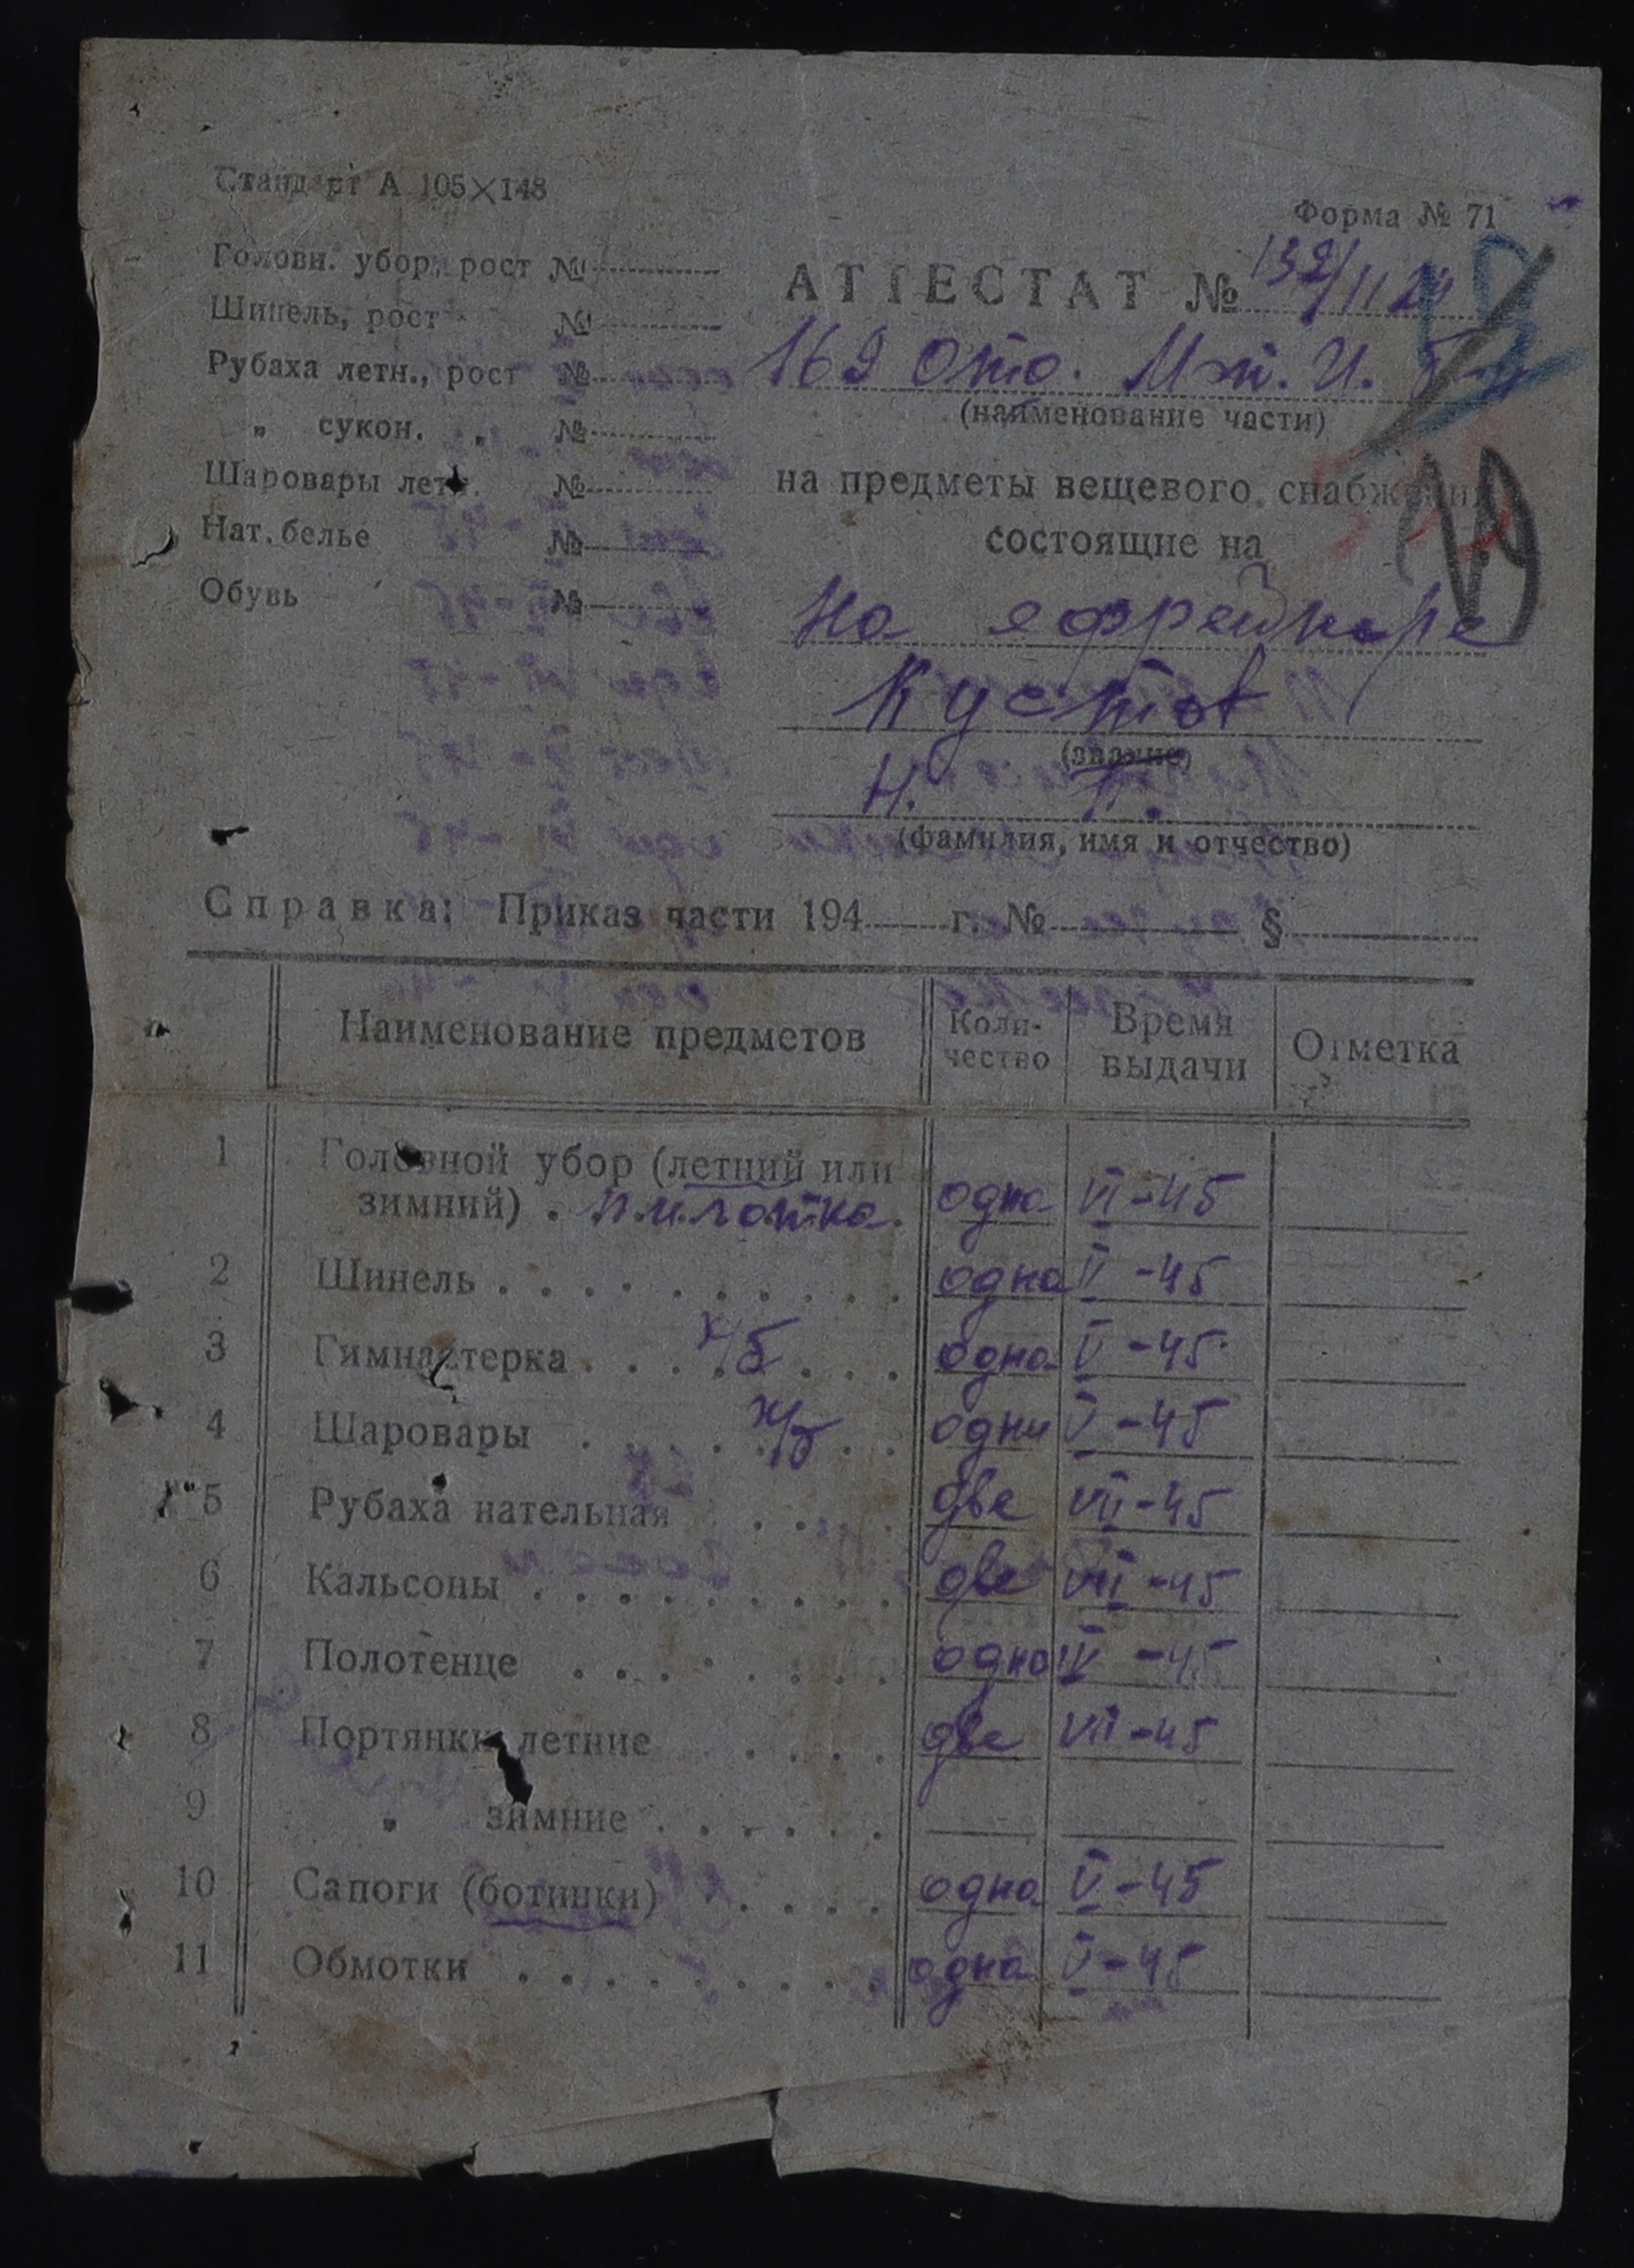 Стандарт А 105×148
Форма № 71
Головн. убор, рост №
Шинель, рост №
Рубаха летн., рост №
„ сукон. „ №
Шаровары летн. №
Нат. белье №
Обувь №
АТТЕСТАТ № 132/1124
169 Отд.
(наименование части)
на предметы вещевого снабжения
состоящие на
19
на ефрейторе
Кустов
(звание)
Н. П.
(фамилия, имя и отчество)
Справка: Приказ части 194 г. № §
Наименование предметов Коли-чество Время выдачи Отметка
1 Головной убор (летний или
зимний) . пилотка одна VI-45
2 Шинель одна V-45
3 Гимнастерка х/б одна V-45
4 Шаровары х/б одни V-45
5 Рубаха нательная две VII-45
6 Кальсоны две VII-45
7 Полотенце одно IV-45
8 Портянки летние две VII-45
9 „ зимние
10 Сапоги (ботинки) одна V-45
11 Обмотки одна V-45